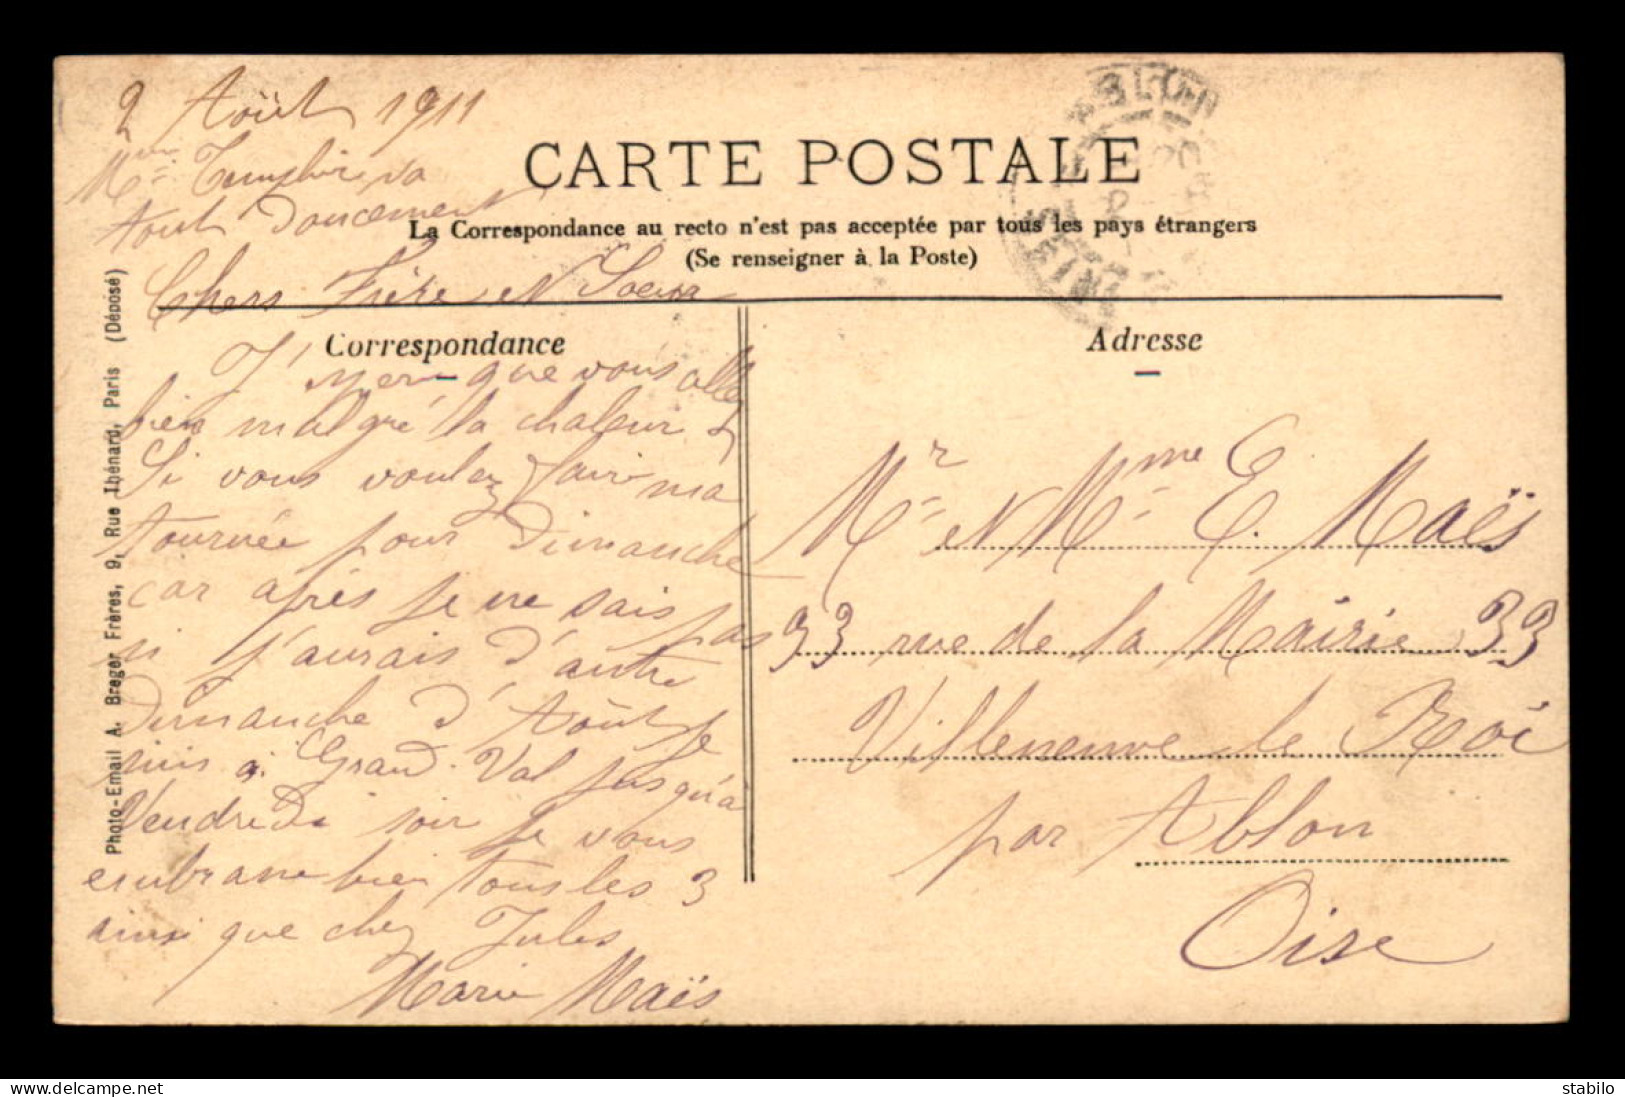 2 Août 1911
Mme Templier va
tout doucement
CARTE POSTALE
La Correspondance au recto n'est pas acceptée par tous les pays étrangers
(Se renseigner à la Poste)
Chers Frère et Soeur
Correspondance
J'espère que vous allez
bien malgré la chaleur
Si vous voulez faire ma
tournée pour Dimanche
car après je ne sais pas
si j'aurais d'autre
Dimanche d'Août je
suis à Grand-Val jusqu'à
Vendredi soir je vous
embrasse bien tous les 3
ainsi que chez Jules
Marie Maës
Adresse
Mr et Mme E. Maës
33 rue de la Mairie 33
Villeneuve le Roi
par Ablon
Oise
Photo-Email A. Breger Frères, 9, Rue Thénard, Paris (Déposé)
delcampe.net
stabilo